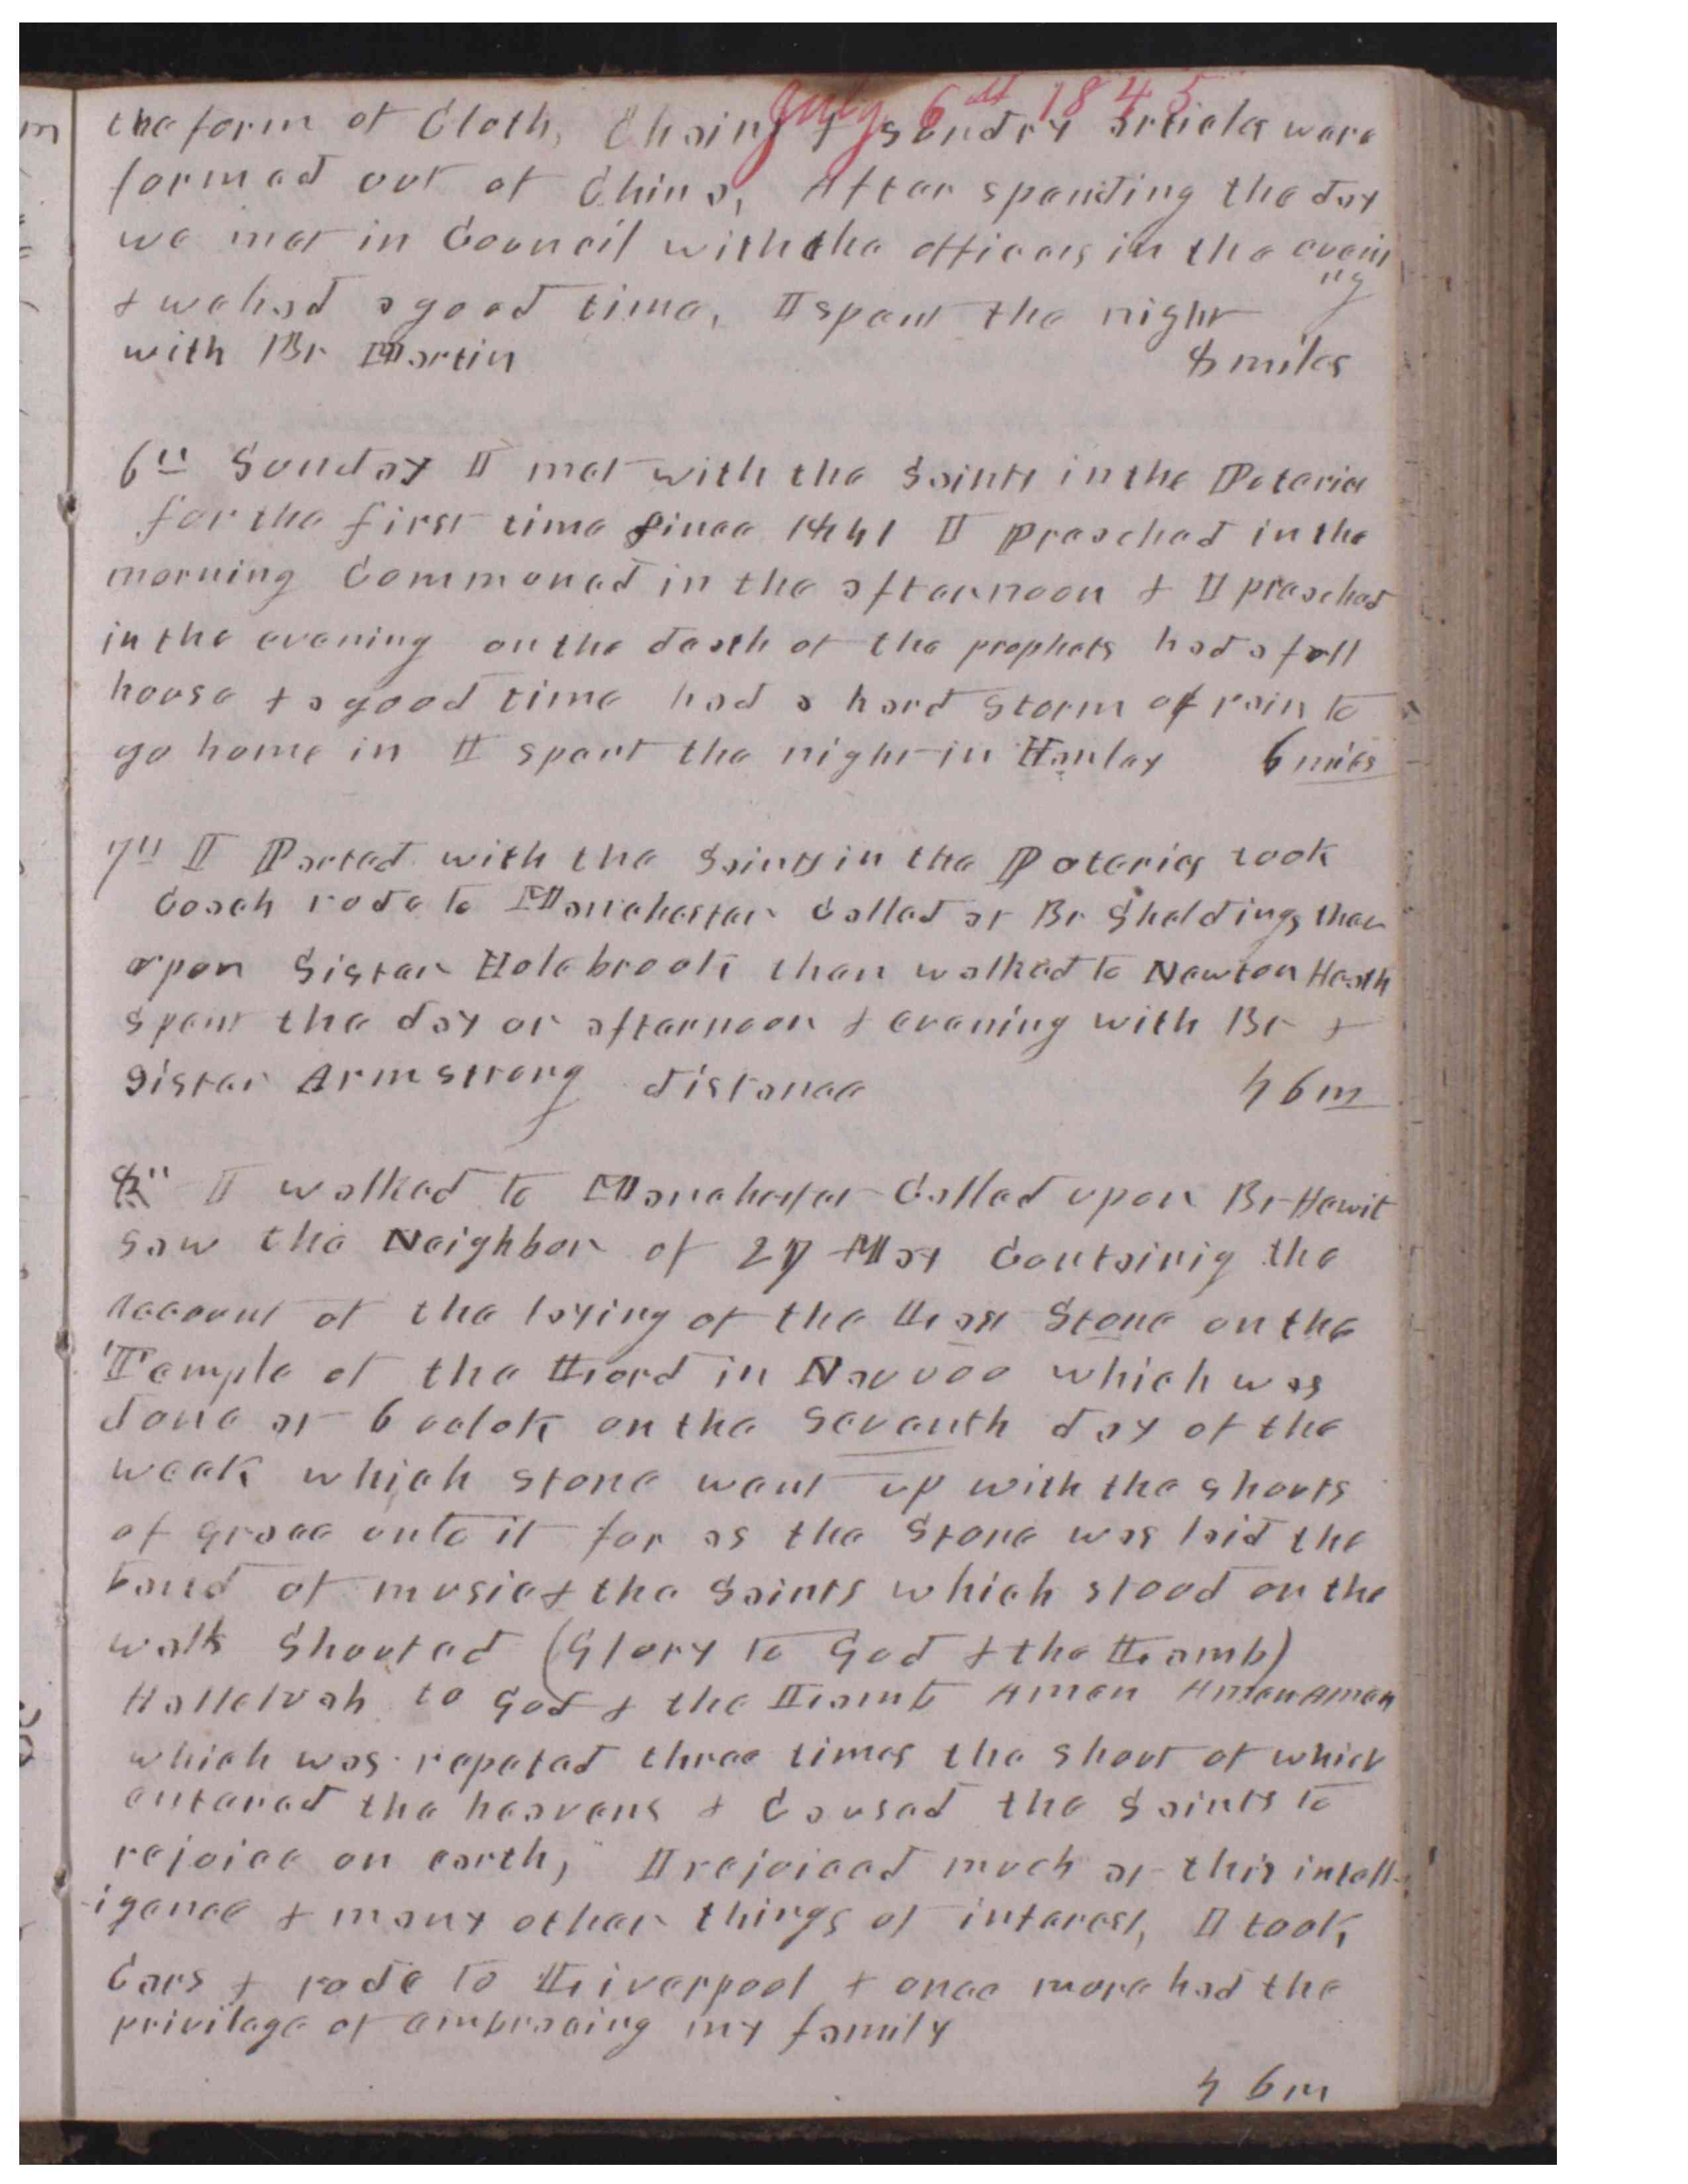 July 6th 1845
the form of Cloth, Chains & sundry articles were
formed out of China, After spending the day
we met in Council with the officers in the evein
ng
& we had a good time, I spent the night
with Br Martin 8 miles
6th Sunday I met with the Saints in the Poteries
for the first time since 1841 I preached in the
morning Communed in the afternoon & I preached
in the evening on the death of the prophets had a full
house & a good time had a hard storm of rain to
go home in I spent the night in Hanley 6 miles
7th I Parted with the Saints in the Poteries took
Coach rode to Manchester Called at Br Sheldings then
upon Sister Holebrook then walked to Newton Heath
spent the day or afternoon & evening with Br &
Sister Armstrong distance 46 m
8th I walked to Manchester Called upon Br Hewit
saw the Neighbor of 27 May Containig the
account of the laying of the Last Stone on the
Temple of the Lord in Nauvoo which was
done at 6 oclok on the seventh day of the
week which stone went up with the shouts
of grace unto it for as the Stone was laid the
band of music & the Saints which stood on the
walls Shouted (Glory to God & the Lamb)
Halleluah to God & the Lamb Amen Amen Amen
which was repeted three times the shout of which
entered the heavens & Caused the Saints to
rejoice on earth, I rejoiced much at this intell-
-igence & many other things of interest, I took
Cars & rode to Liverpool & once more had the
privilege of embracing my family
46 m